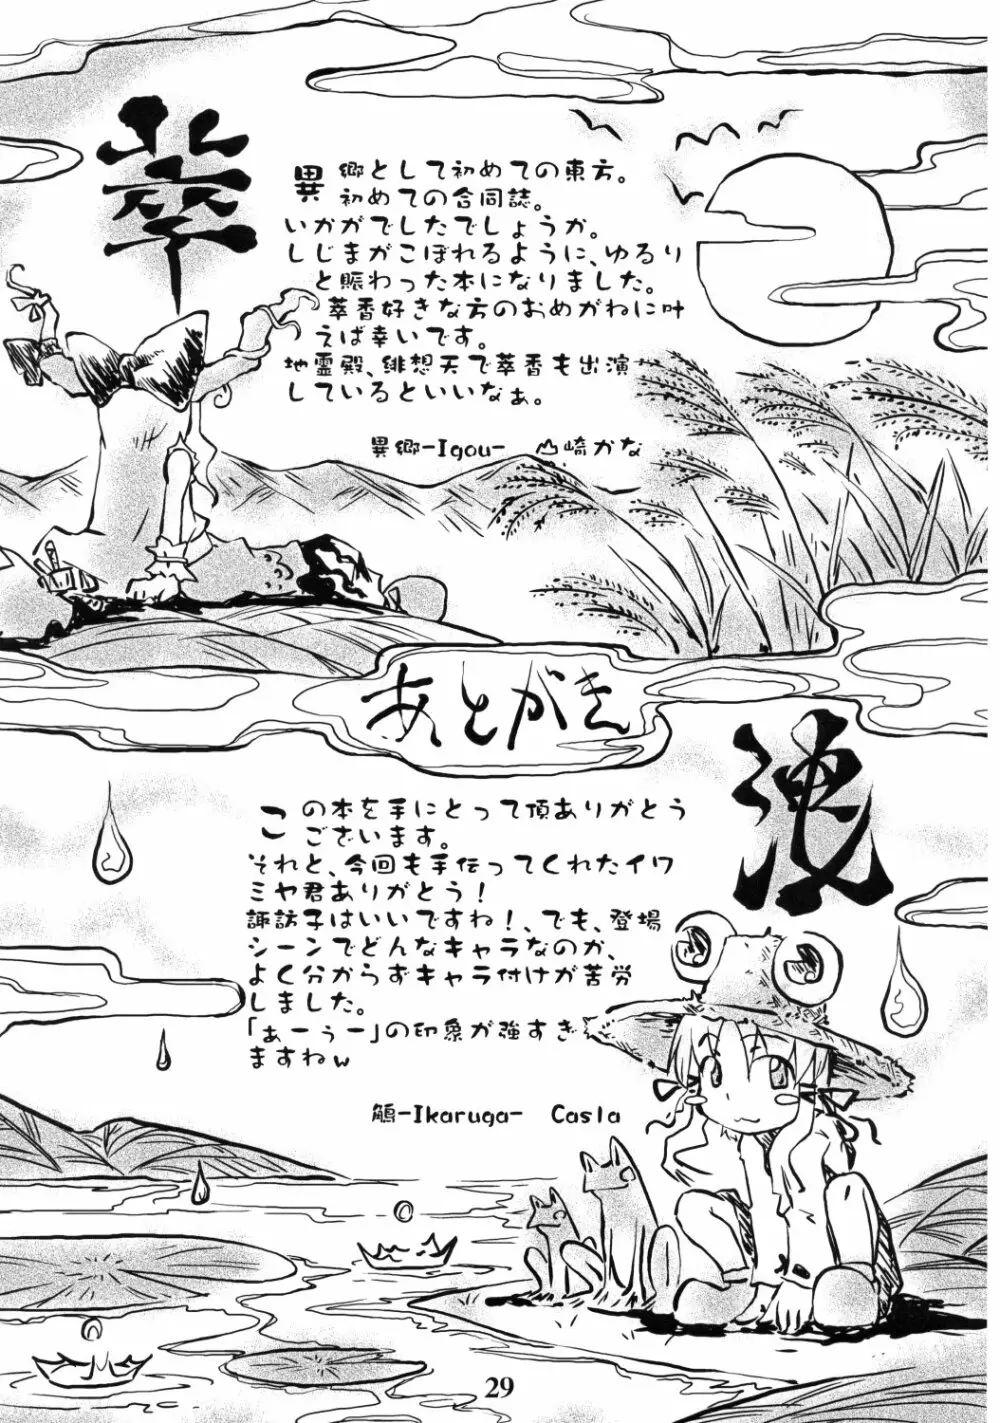 萃
異郷として初めての東方。
初めての合同誌。
いかがでしたでしょうか。
しじまがこぼれるように、ゆるり
と賑わった本になりました。
萃香好きな方のおめがねに叶
えば幸いです。
地霊殿、緋想天で萃香も出演
しているといいなぁ。
異郷-Igou- 山崎かな
あとがき
この本を手にとって頂ありがとう
ございます。
それと、今回も手伝ってくれたイワ
ミヤ君ありがとう!
諏訪子はいいですね!、でも、登場
シーンでどんなキャラなのか、
よく分からずキャラ付けが苦労
しました。
「あーうー」の印象が強すぎ
ますねw
鵤-Ikaruga- Casla
29